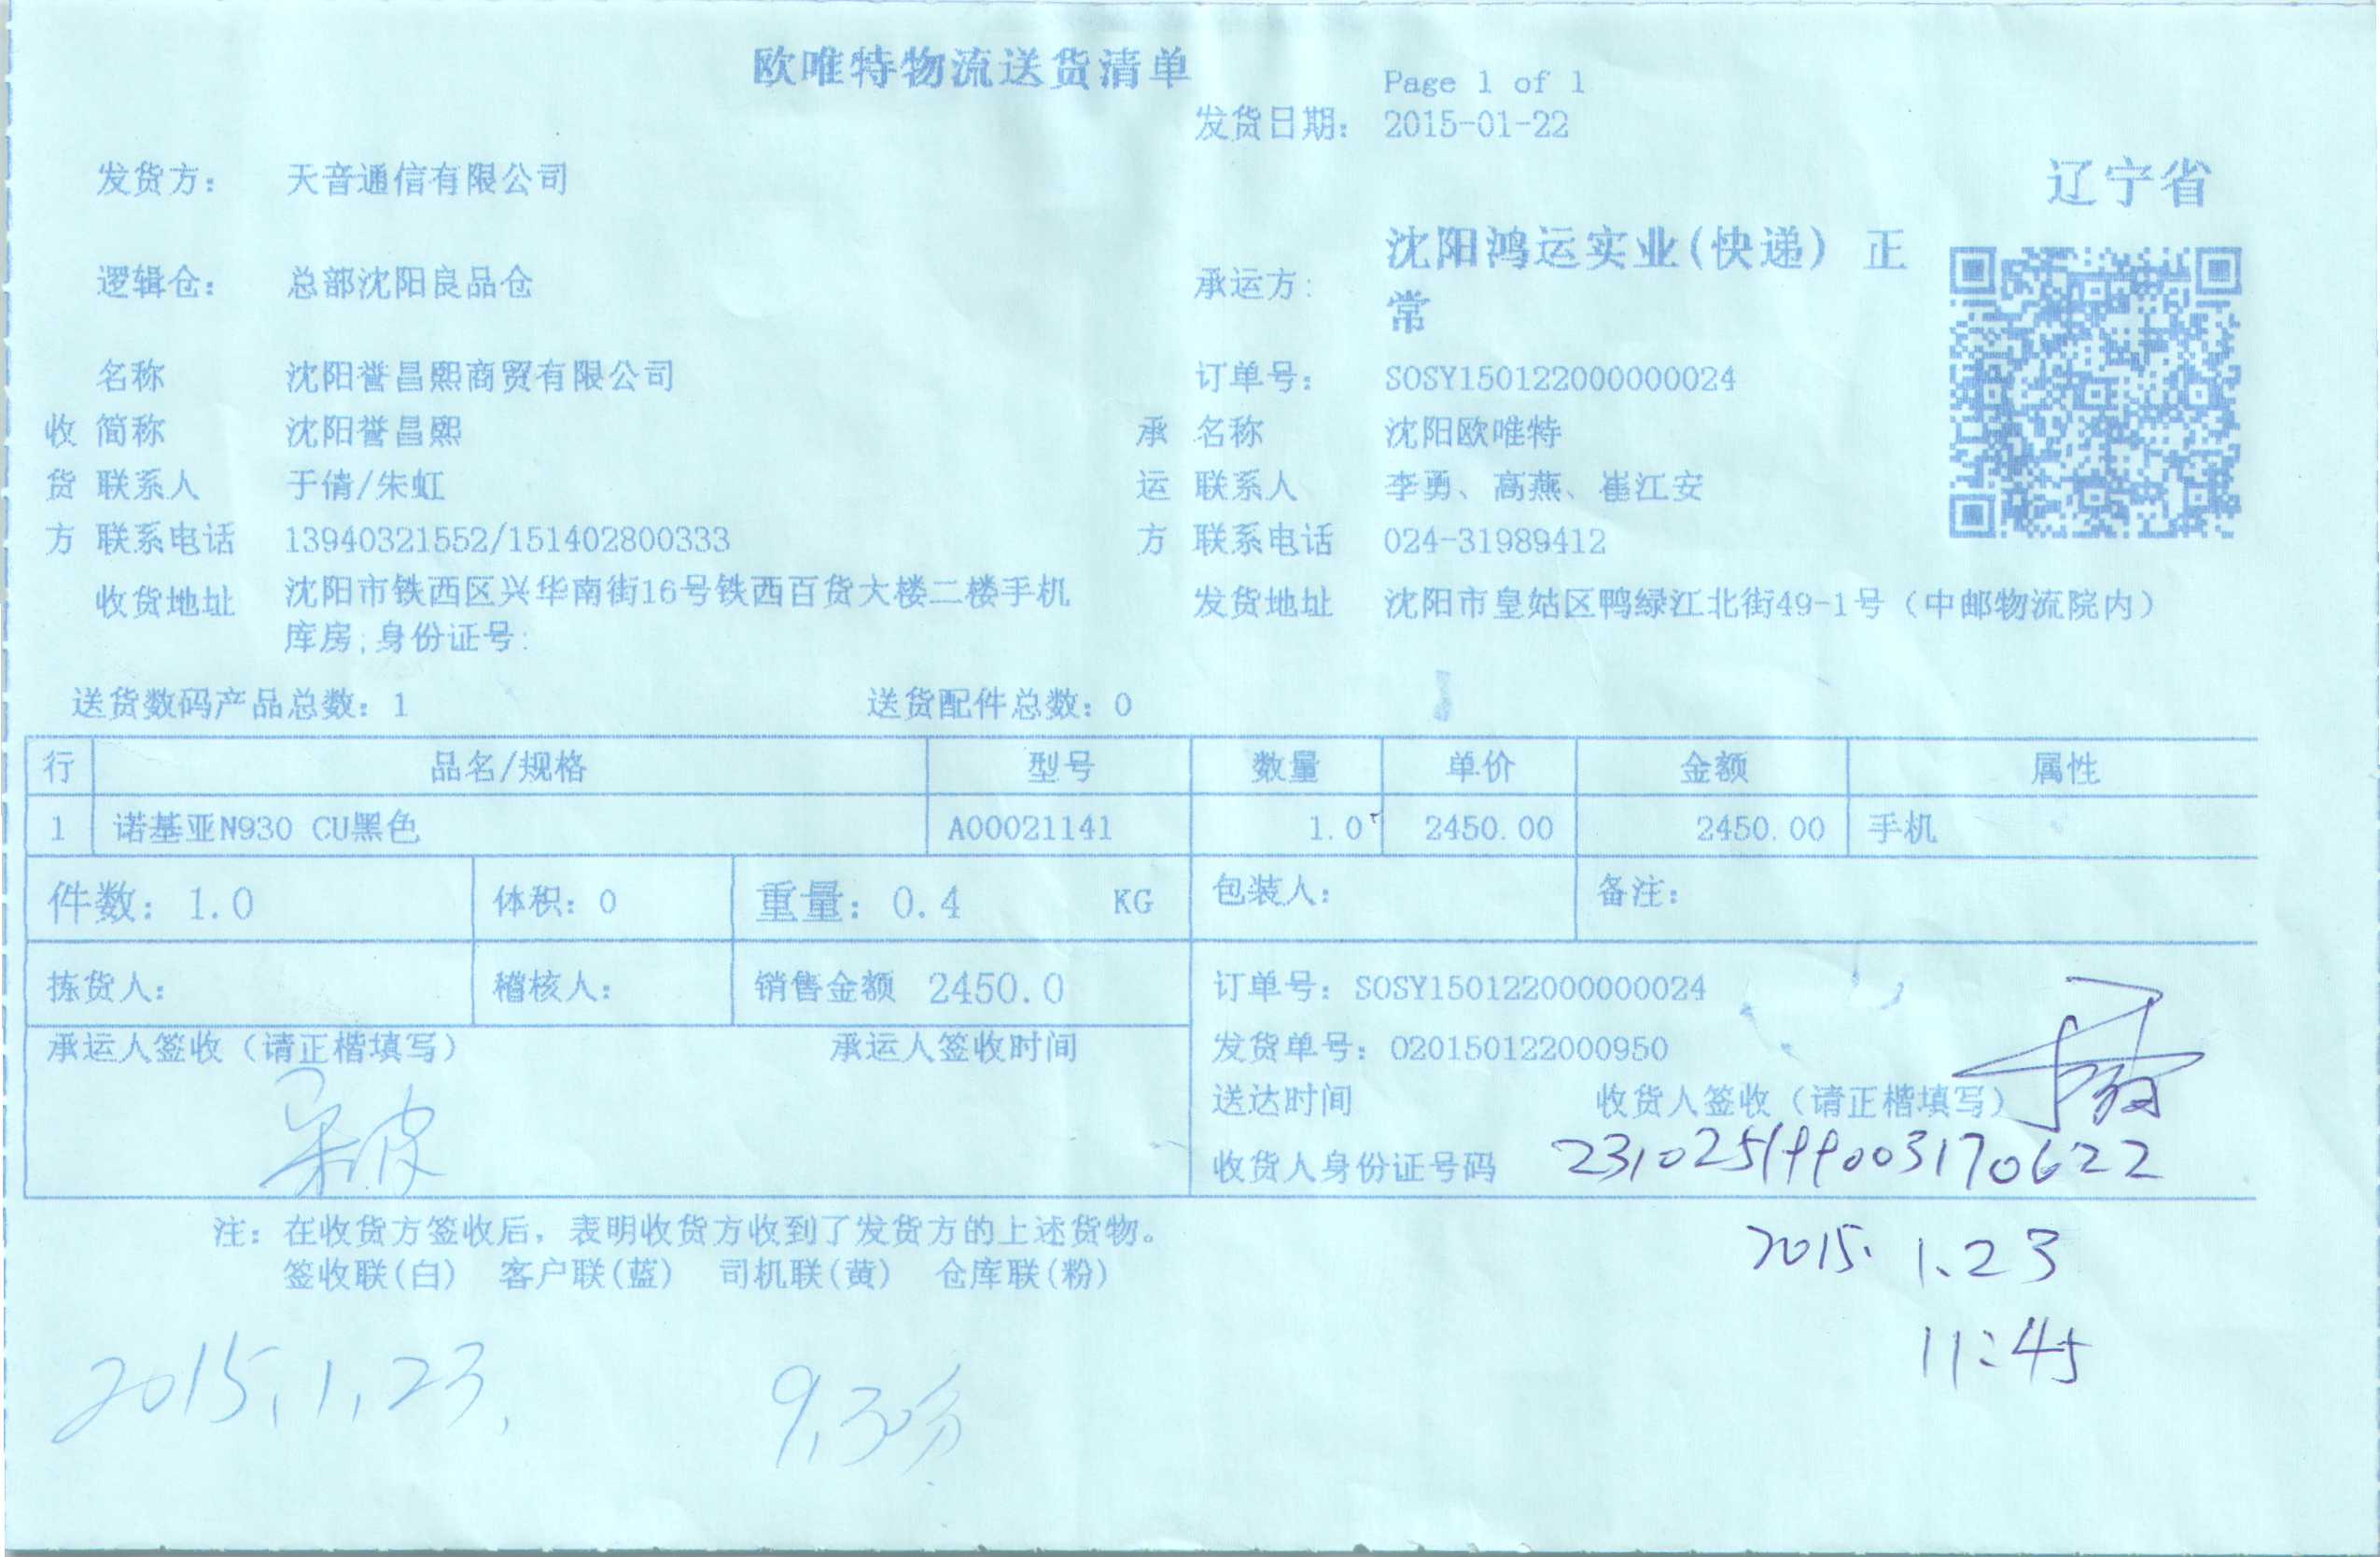 欧唯特物流送货清单
Page 1 of 1
发货日期： 2015-01-22
发货方： 天音通信有限公司
辽宁省
逻辑仓： 总部沈阳良品仓
承运方： 沈阳鸿运实业(快递) 正
常
名称 沈阳誉昌熙商贸有限公司 订单号： SOSY150122000000024
收 简称 沈阳誉昌熙 承 名称 沈阳欧唯特
货 联系人 于倩/朱虹 运 联系人 李勇、高燕、崔江安
方 联系电话 13940321552/151402800333 方 联系电话 024-31989412
收货地址 沈阳市铁西区兴华南街16号铁西百货大楼二楼手机
库房;身份证号:
发货地址 沈阳市皇姑区鸭绿江北街49-1号（中邮物流院内）
送货数码产品总数：1 送货配件总数：0
行 品名/规格 型号 数量 单价 金额 属性
1 诺基亚N930 CU黑色 A00021141 1.0 2450.00 2450.00 手机
件数：1.0 体积：0 重量：0.4 KG 包装人： 备注：
拣货人： 稽核人： 销售金额 2450.0 订单号：SOSY150122000000024
承运人签收（请正楷填写） 承运人签收时间 发货单号：020150122000950
送达时间 收货人签收（请正楷填写）
收货人身份证号码 231025199003170622
注：在收货方签收后，表明收货方收到了发货方的上述货物。
签收联(白) 客户联(蓝) 司机联(黄) 仓库联(粉)
2015.1.23
11:45
2015.1.23. 9.30分